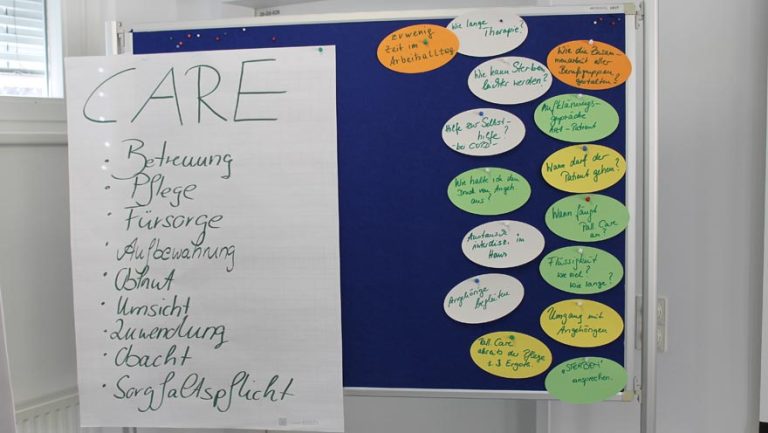 CARE
· Betreuung
· Pflege
· Fürsorge
· Aufbewahrung
· Obhut
· Umsicht
· Zuwendung
· Obacht
· Sorgfaltspflicht
zu wenig
Zeit im
Arbeitsalltag
Wie lange
Therapie?
Wie kann Sterben
leichter werden?
Hilfe zur Selbst-
hilfe?
- bei COPD -
Wie halte ich den
Druck von Angeh.
aus?
Austausch
interdisz. im
Haus
Angehörige
begleiten
Pall Care
abseits der Pflege
z.B. Ergoth.
Wie die Zusam-
menarbeit aller
Berufsgruppen
gestalten?
Aufklärungs-
gespräche
Arzt - Patient
Wann darf der
Patient gehen?
Wann fängt
Pall Care
an?
Flüssigkeit
wie viel?
wie lange?
Umgang mit
Angehörigen
"STERBEN"
ansprechen.